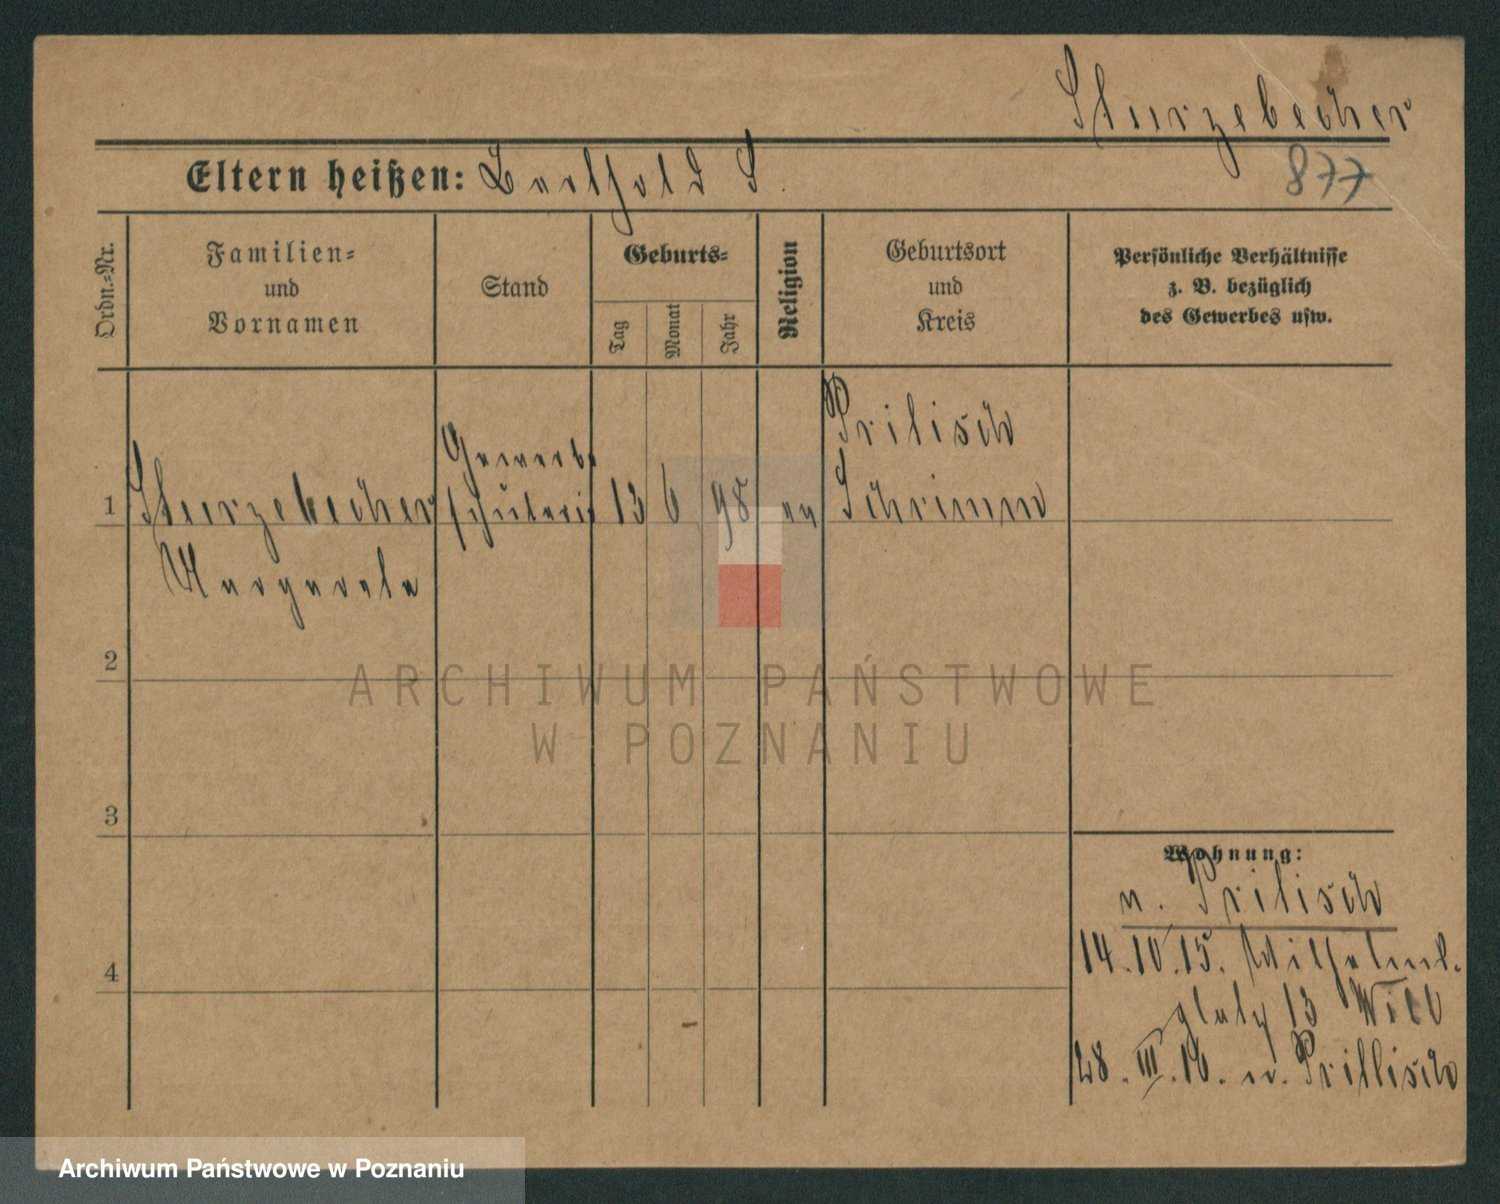 Sturzebecher
877
Eltern heißen: Berthold S.
Ordn.-Nr.
Familien-
und
Vornamen
Stand
Geburts-
Tag
Monat
Jahr
Religion
Geburtsort
und
Kreis
Persönliche Verhältnisse
z. B. bezüglich
des Gewerbes usw.
1
Sturzebecher
Margarete
Gewerbe
schülerin
13
6
98
ev
Prilisch
Schrimm
2
3
4
Wohnung:
v. Prilisch
14.10.15. Wilhelms.
platz 13
28.III.16. n. Prillisch
ARCHIWUM PAŃSTWOWE
W POZNANIU
Archiwum Państwowe w Poznaniu